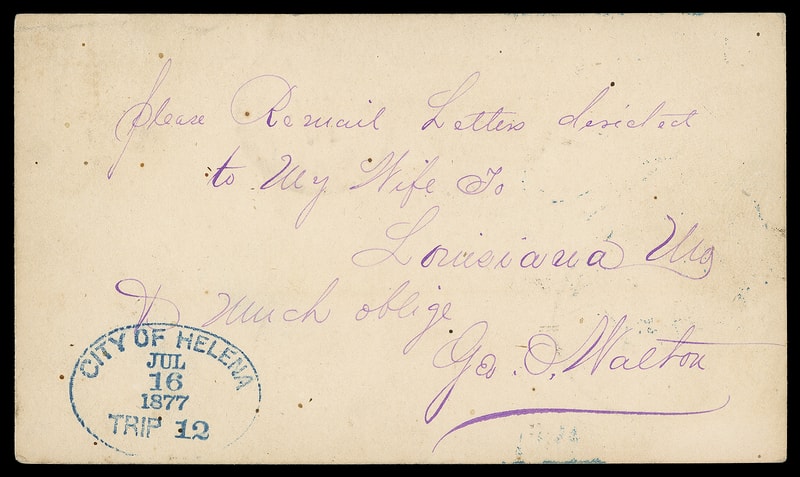 please Remail Letters desicted
to My Wife To
Louisiana Mo
& Much oblige
Geo. S. Walton
CITY OF HELENA
JUL
16
1877
TRIP 12